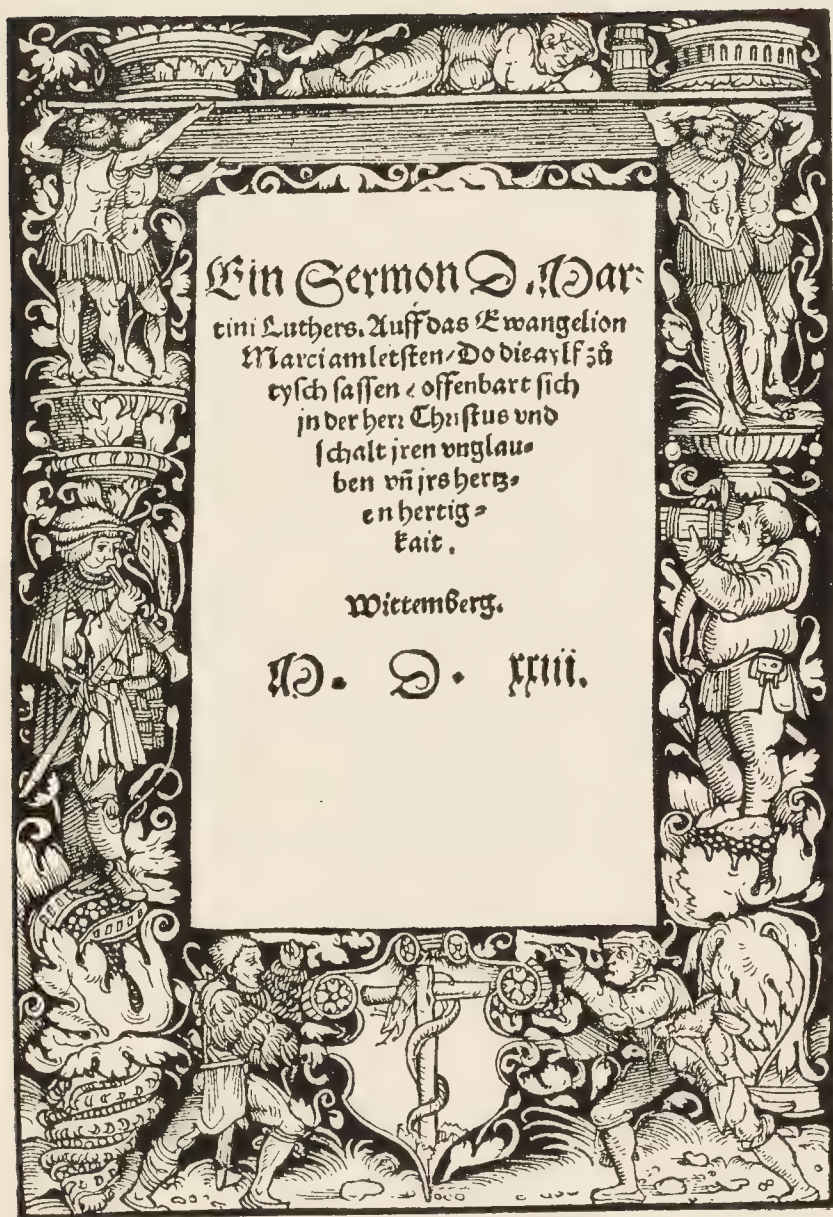 Ein Sermon D. Mar⸗
tini Luthers. Auff das Ewangelion
Marci am letsten / Do die aylf zů
tysch sassen / offenbart sich
jn der herr Christus vnd
schalt jren vnglau⸗
ben vñ jrs hertz⸗
en hertig⸗
kait.
Wittemberg.
M. D. xxiii.